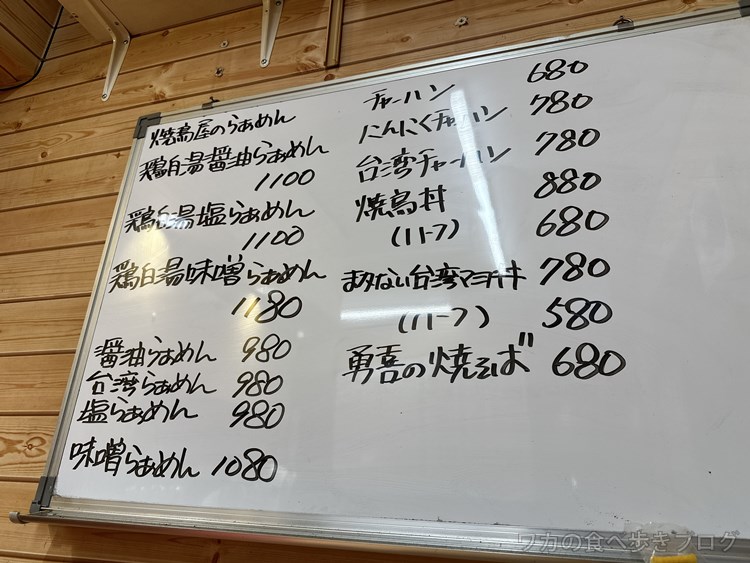 焼鳥屋のらぁめん
鶏白湯醤油らぁめん
1100
鶏白湯塩らぁめん
1100
鶏白湯味噌らぁめん
1180
醤油らぁめん 980
台湾らぁめん 980
塩らぁめん 980
味噌らぁめん 1080
チャーハン 680
にんにくチャーハン 780
台湾チャーハン 780
焼鳥丼 880
(ハーフ) 680
まぜない台湾マヨ丼 780
(ハーフ) 580
勇喜の焼そば 680
ワカの食べ歩きブログ